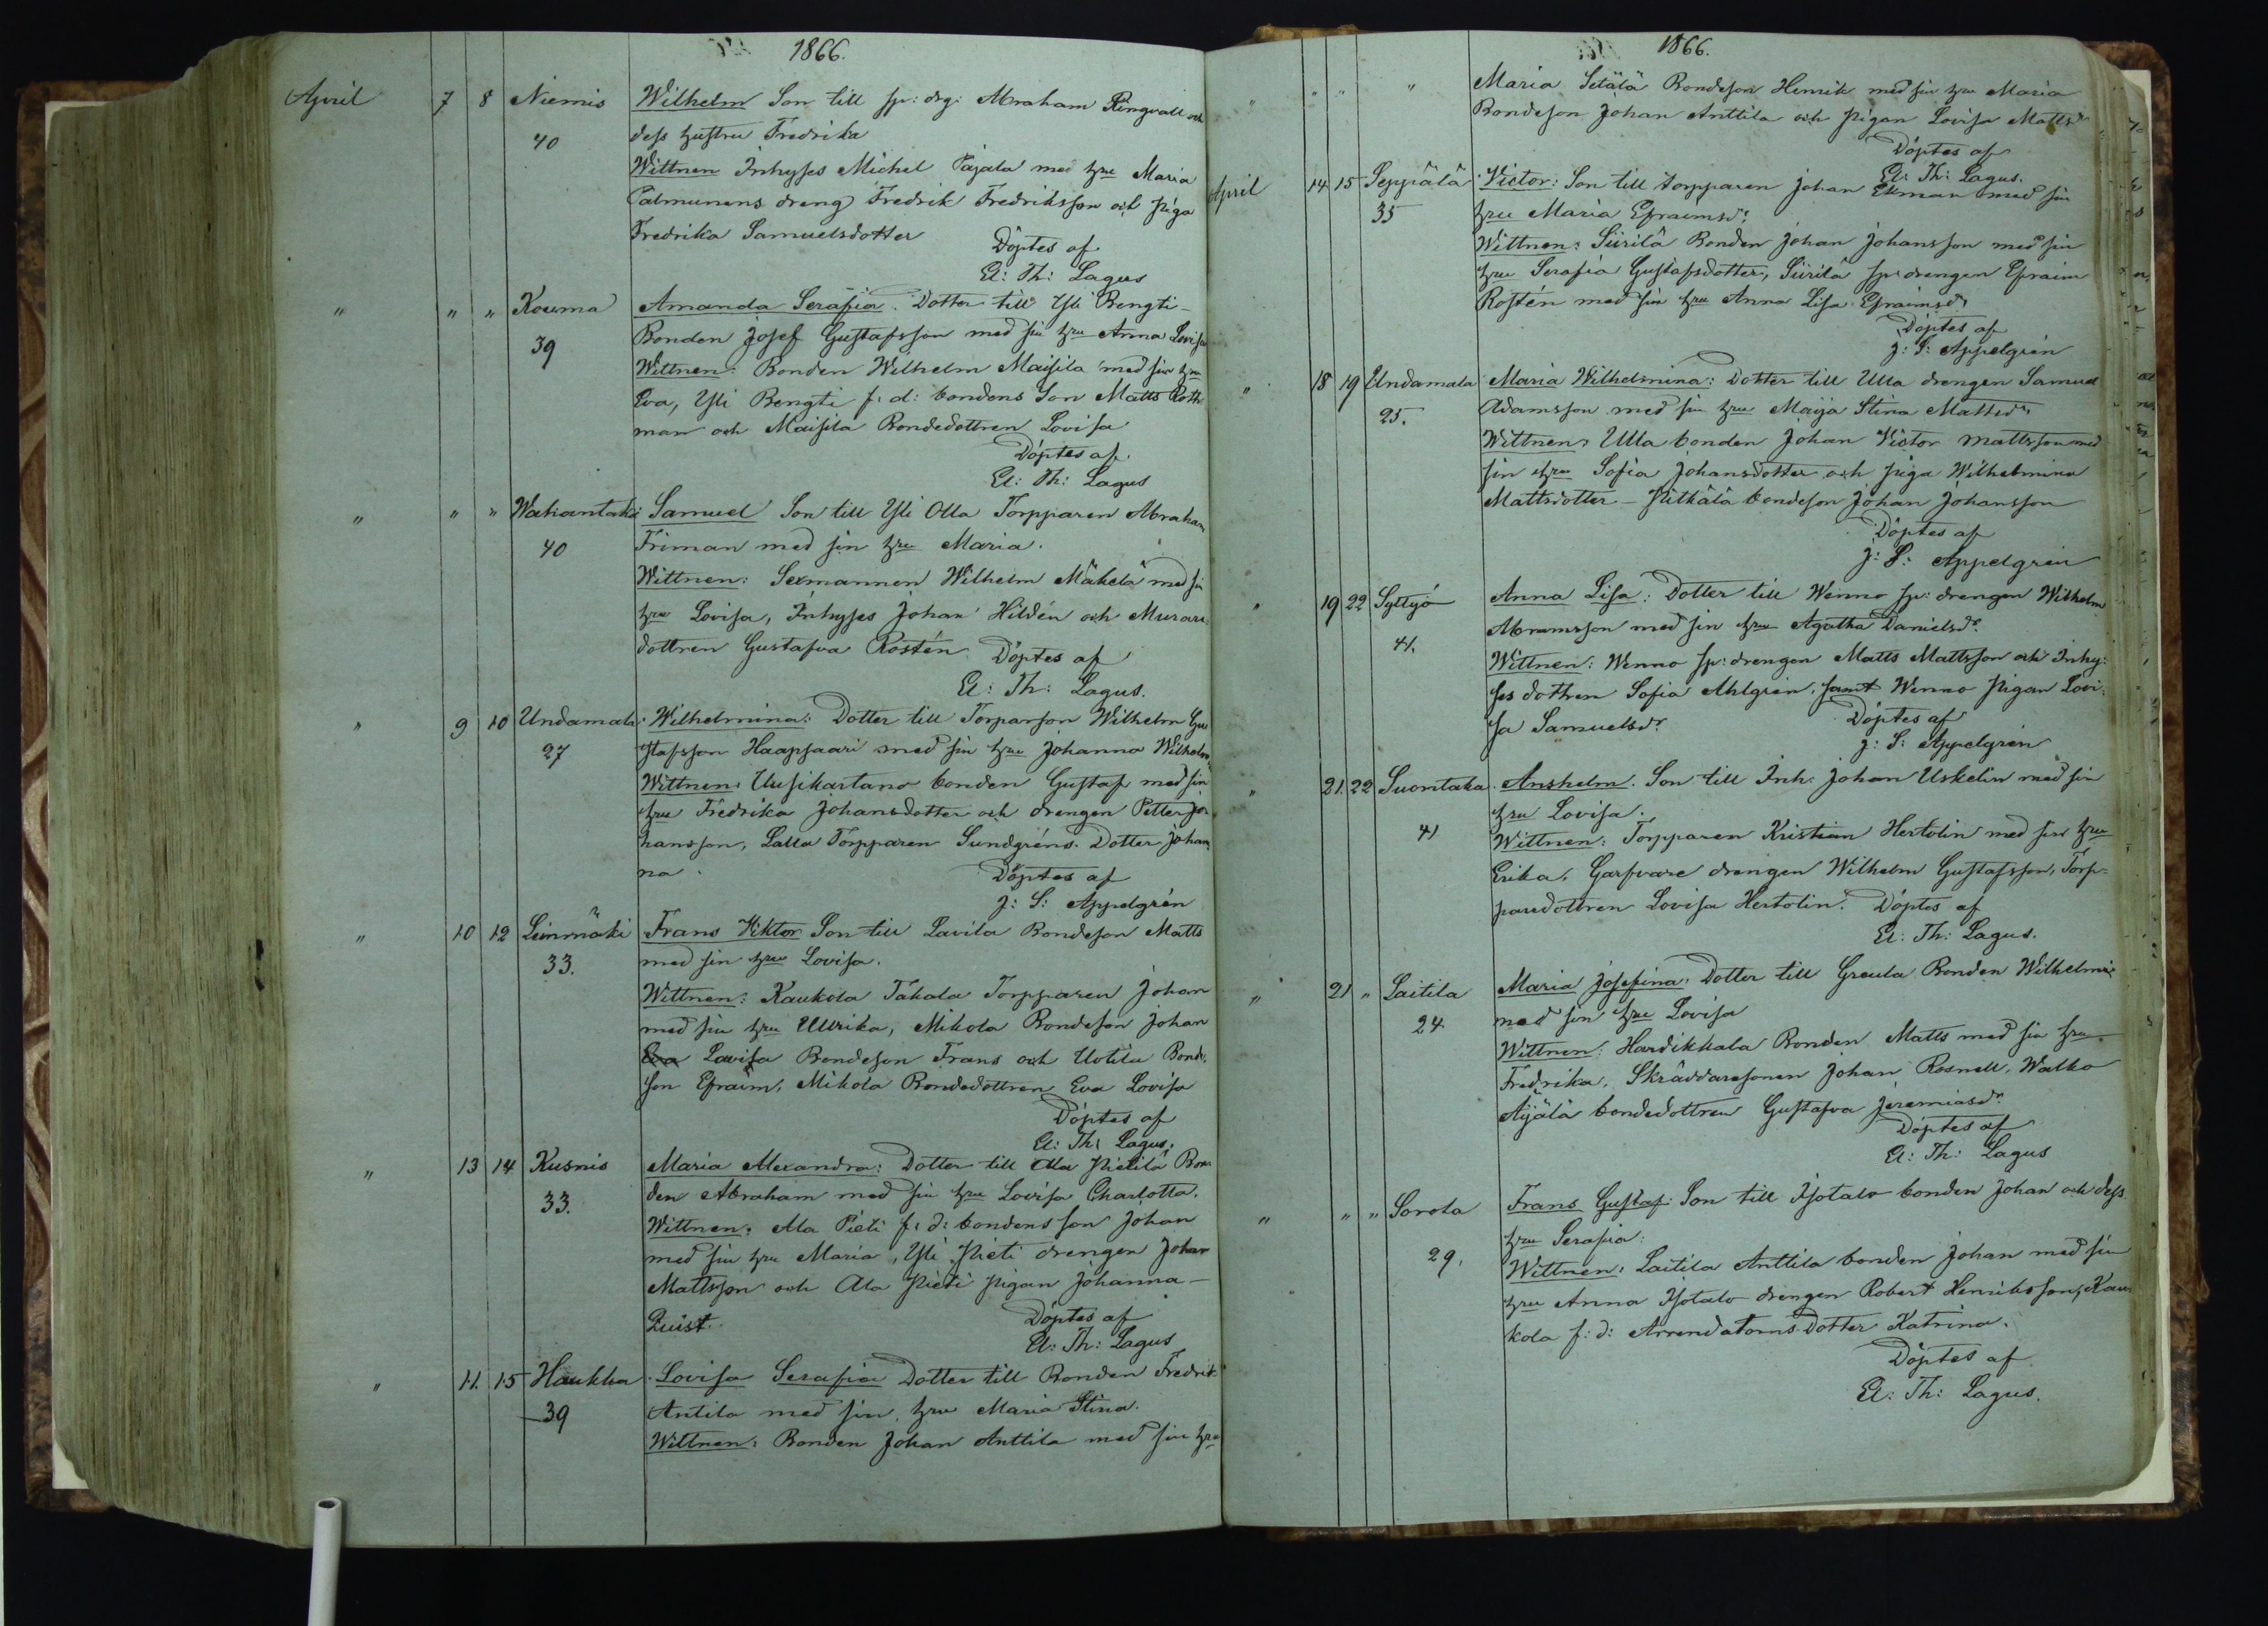 1866.
April 7 8 Niemis Wilhelm Son till sp: drg: Abraham Ringvall och
40 dess hustru Fredrika
Wittnen Inhyses Michel Pajala med hru Maria
Palmunens dreng Fredrik Fredriksson och piga
Fredrika Samuelsdotter
Döptes af
El: Th: Lagus
" " " Kouma Amanda Serafia. Dotter till Yli Bengti-
39 Bonden Josef Gustafsson med sin hru Anna Lovisa
Wittnen: Bonden Wilhelm Maisila med sin hru
Eva, Yli Bengti f: d: bondens Son Matts Roth
man och Maisila Bondedottren Lovisa
Döptes af.
El: Th: Lagus
" " " Wahantaka Samuel Son till Yli Olla Torpparen Abraham
40 Friman med sin hru Maria.
Wittnen: Sexmannen Wilhelm Mäkelä med sin
hru Lovisa, Inhyses Johan Hildén och Murare
dottren Gustafva Rostén.
Döptes af
El: Th: Lagus.
" 9 10 Undamala Wilhelmina: Dotter till Torparson Wilhelm Gu
27 stafsson Haapsaari med sin hru Johanna Wilhelm
Wittnen: Uusikartano bonden Gustaf med sin
hru Fredrika Johansdotter och drengen Petter Jo
hansson, Lalla Torpparen Sundgréns Dotter Johan
na.
Döptes af
J: S: Appelgrén
" 10 12 Leinmäki Frans Viktor Son till Lavila Bondeson Matts
33. med sin hru Lovisa.
Wittnen: Kaukola Takala Torpparen Johan
med sin hru Ullrika, Mikola Bondeson Johan
Eva Lavila Bondeson Frans och Uotila Bonde
son Efraim, Mikola Bondedottren Eva Lovisa
Döptes af
El: Th: Lagus.
" 13 14 Kusnis Maria Alexandra: Dotter till Ala Pietilä Bon
33. den Abraham med sin hru Lovisa Charlotta.
Wittnen: Ala Pieti f: d: bondens son Johan
med sin hru Maria, Yli Pieti drengen Johan
Mattsson och Ala Pieti Pigan Johanna-
Quist.
Döptes af
El: Th: Lagus
" 11. 15 Haukka Lovisa Serafia Dotter till Bonden Fredrik
39 Antila med sin hru Maria Stina.
Wittnen: Bonden Johan Anttila med sin hru
1866.
" " " " Maria Setälä Bondeson Henrik med sin hru Maria
Bondeson Johan Anttila och Pigan Lovisa Mattsdr
Döptes af
El: Th: Lagus.
April 14 15 Seppälä Victor: Son till torpparen Johan Ekman med sin
35 hru Maria Efraimsdr
Wittnen: Siirilä Bonden Johan Johansson med sin
hru Serafia Gustafsdotter, Siirilä sp: drengen Efraim
Rostén med sin hru Anna Lisa Efraimsdr
Döptes af
J: S: Appelgrén
" 18 19 Undamala Maria Wilhelmina: Dotter till Ulla drengen Samuel
25. Adamsson med sin hru Maija Stina Mattsdr
Wittnen: Ulla bonden Johan Victor Mattsson med
sin hru Sofia Johansdotter och piga Wilhelmina
Mattsdotter - Pitkälä bondeson Johan Johansson
Döptes af
J: S: Appelgrén
" 19 22 Syttyö Anna Lisa: Dotter till Wenno sp: drengen Wilhelm
41. Abramsson med sin hru Agatha Danielsdr.
Wittnen: Wenno sp: drengen Matts Mattsson och Inhy:
ses dottren Sofia Ahlgrén, samt Wenno Pigan Lovi:
sa Samuelsdr
Döptes af
J: S: Appelgrén
" 21. 22 Suontaka Anshelm. Son till Inh: Johan Uskelin med sin
41 hru Lovisa.
Wittnen: Torpparen Kristian Hertolin med sin hru
Erika, Garfvare drengen Wilhelm Gustafsson, Torp-
paredottren Lovisa Hertolin.
Döptes af
El: Th: Lagus.
" 21 " Laitila Maria Josefina: Dotter till Greula Bonden Wilhelm
24 med sin hru Lovisa
Wittnen: Hardikkala Bonden Matts med sin hru
Fredrika, Skräddaresonen Johan Rosnell, Walko
Äijälä bondedottren Gustafva Jeremiasdr.
Döptes af
El: Th: Lagus
" " " Sorola Frans Gustaf: Son till Isotalo bonden Johan och dess
29. hru Serafia:
Wittnen: Laitila Anttila bonden Johan med sin
hru Anna Isotalo drengen Robert Henriksson, Kau
kola f: d: Arrendatorns Dotter Katrina.
Döptes af
El: Th: Lagus.